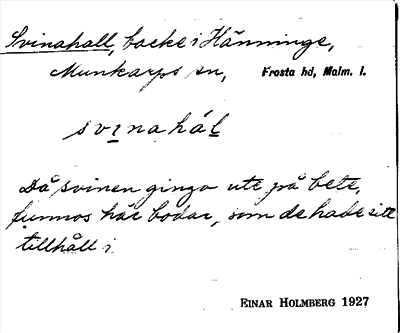 Svinahall, backe i Hänninge,
Munkarps sn, Frosta hd, Malm. l.
svinahál
Då svinen gingo ute på bete,
funnos här bodar, som de hade sitt
tillhåll i.
EINAR HOLMBERG 1927